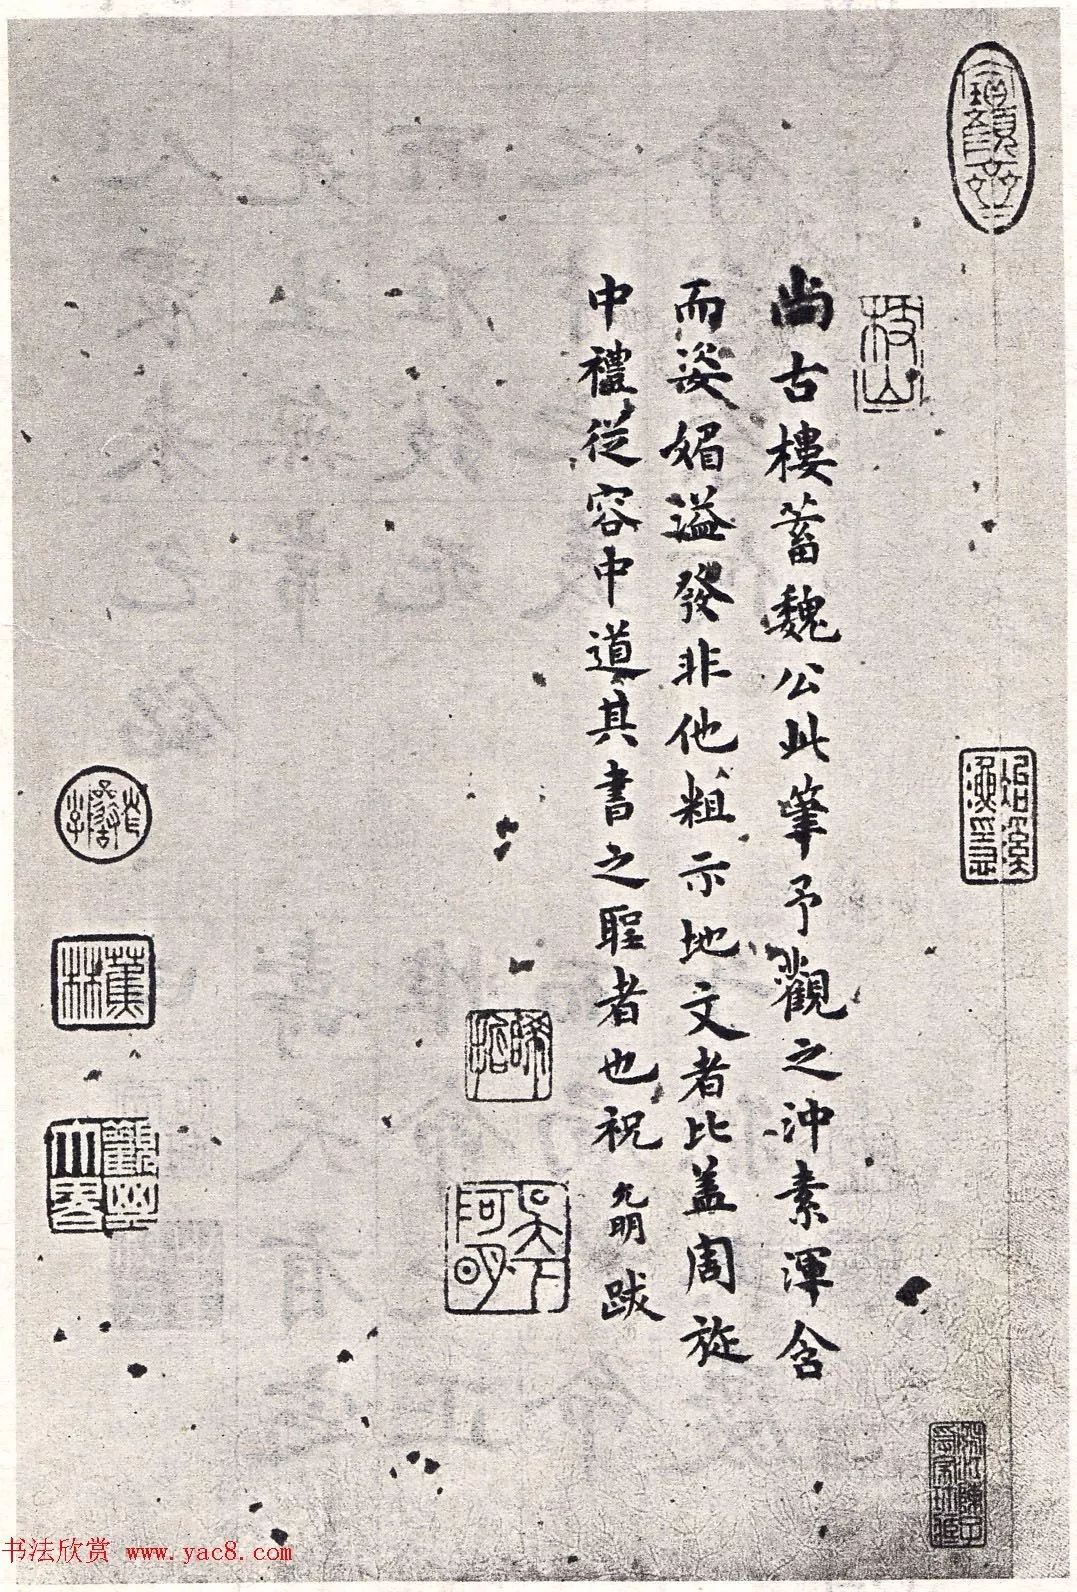 枝山
尚古樓蓄魏公此筆予觀之沖素渾含
而姿媚溢發非他粗示地文者比蓋周旋
中禮從容中道其書之聖者也祝允明跋
晞哲
蕉林
觀其大略
书法欣赏 www.yac8.com